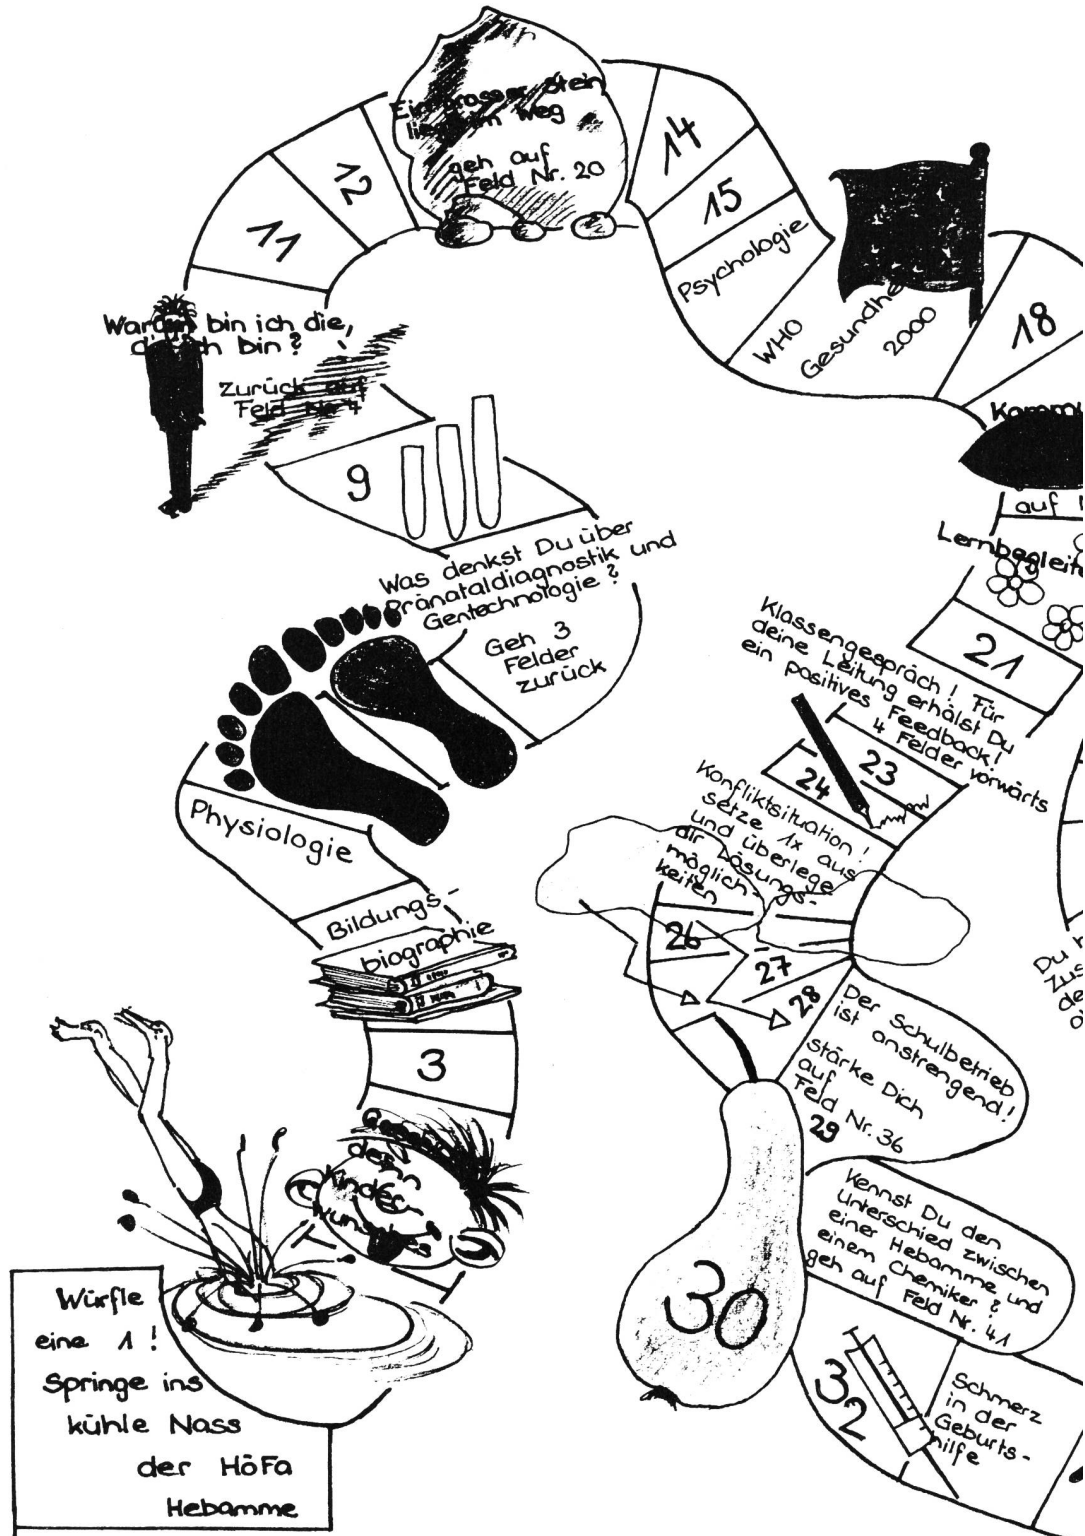 Würfle
eine 1 !
Springe ins
kühle Nass
der HöFa
Hebamme
dem
Kinder
wunsches
3
Bildungs-
biographie
Physiologie
Was denkst Du über
Pränataldiagnostik und
Gentechnologie ?
Geh 3
Felder
zurück
9
Warum bin ich die,
die ich bin ?
Zurück auf
Feld Nr 4
11
12
Ein grosser Stein
liegt im Weg
geh auf
Feld Nr. 20
14
15
Psychologie
WHO
2000
18
auf
21
Klassengespräch ! Für
deine Leitung erhälst Du
ein positives Feedback!
4 Felder vorwärts
23
24
Konfliktsituation !
setze 1x aus
und überlege
dir Lösungs-
möglich-
keiten
26
27
28
Der Schulbetrieb
ist anstrengend!
stärke Dich
auf
Feld Nr. 36
29
30
Kennst Du den
Unterschied zwischen
einer Hebamme und
einem Chemiker ?
geh auf Feld Nr. 41
32
Schmerz
in der
Geburts-
hilfe
Du